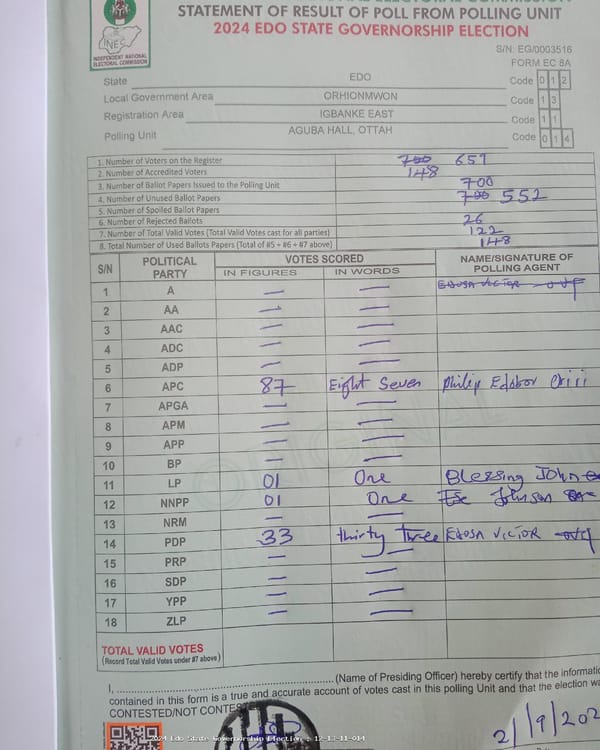 INEC
INDEPENDENT NATIONAL
ELECTORAL COMMISSION
STATEMENT OF RESULT OF POLL FROM POLLING UNIT
2024 EDO STATE GOVERNORSHIP ELECTION
S/N: EG/0003516
FORM EC 8A
State EDO Code 0 1 2
Local Government Area ORHIONMWON Code 1 3
Registration Area IGBANKE EAST Code 1 1
Polling Unit AGUBA HALL, OTTAH Code 0 1 4
1. Number of Voters on the Register 700 657
2. Number of Accredited Voters 148
3. Number of Ballot Papers Issued to the Polling Unit 700
4. Number of Unused Ballot Papers 700 552
5. Number of Spoiled Ballot Papers
6. Number of Rejected Ballots 26
7. Number of Total Valid Votes (Total Valid Votes cast for all parties) 122
8. Total Number of Used Ballots Papers (Total of #5 + #6 + #7 above) 148
S/N POLITICAL PARTY VOTES SCORED NAME/SIGNATURE OF POLLING AGENT
IN FIGURES IN WORDS
1 A — — EDOSA VICTOR
2 AA — —
3 AAC — —
4 ADC — —
5 ADP — —
6 APC 87 Eight Seven Philip Edobor
7 APGA — —
8 APM — —
9 APP — —
10 BP — —
11 LP 01 One Blessing JOHN
12 NNPP 01 One Ese Johnson
13 NRM — —
14 PDP 33 thirty three EDOSA VICTOR
15 PRP — —
16 SDP — —
17 YPP — —
18 ZLP — —
TOTAL VALID VOTES
(Record Total Valid Votes under #7 above)
I, (Name of Presiding Officer) hereby certify that the
contained in this form is a true and accurate account of votes cast in this polling Unit and that the election
CONTESTED/NOT
2024 Edo State Governorship Election : 12-13-11-014
21/9/202